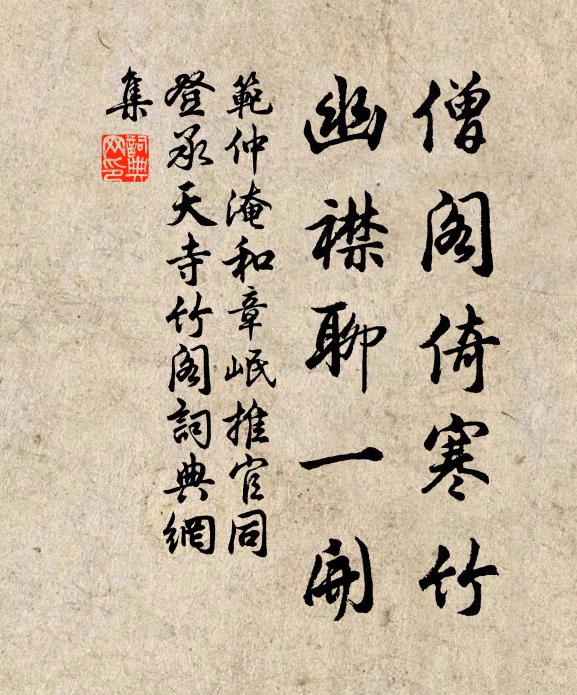 僧阁倚寒竹
幽襟聊一開
範仲淹和章岷推官同
登承天寺竹阁詞典網
集
詞典网印